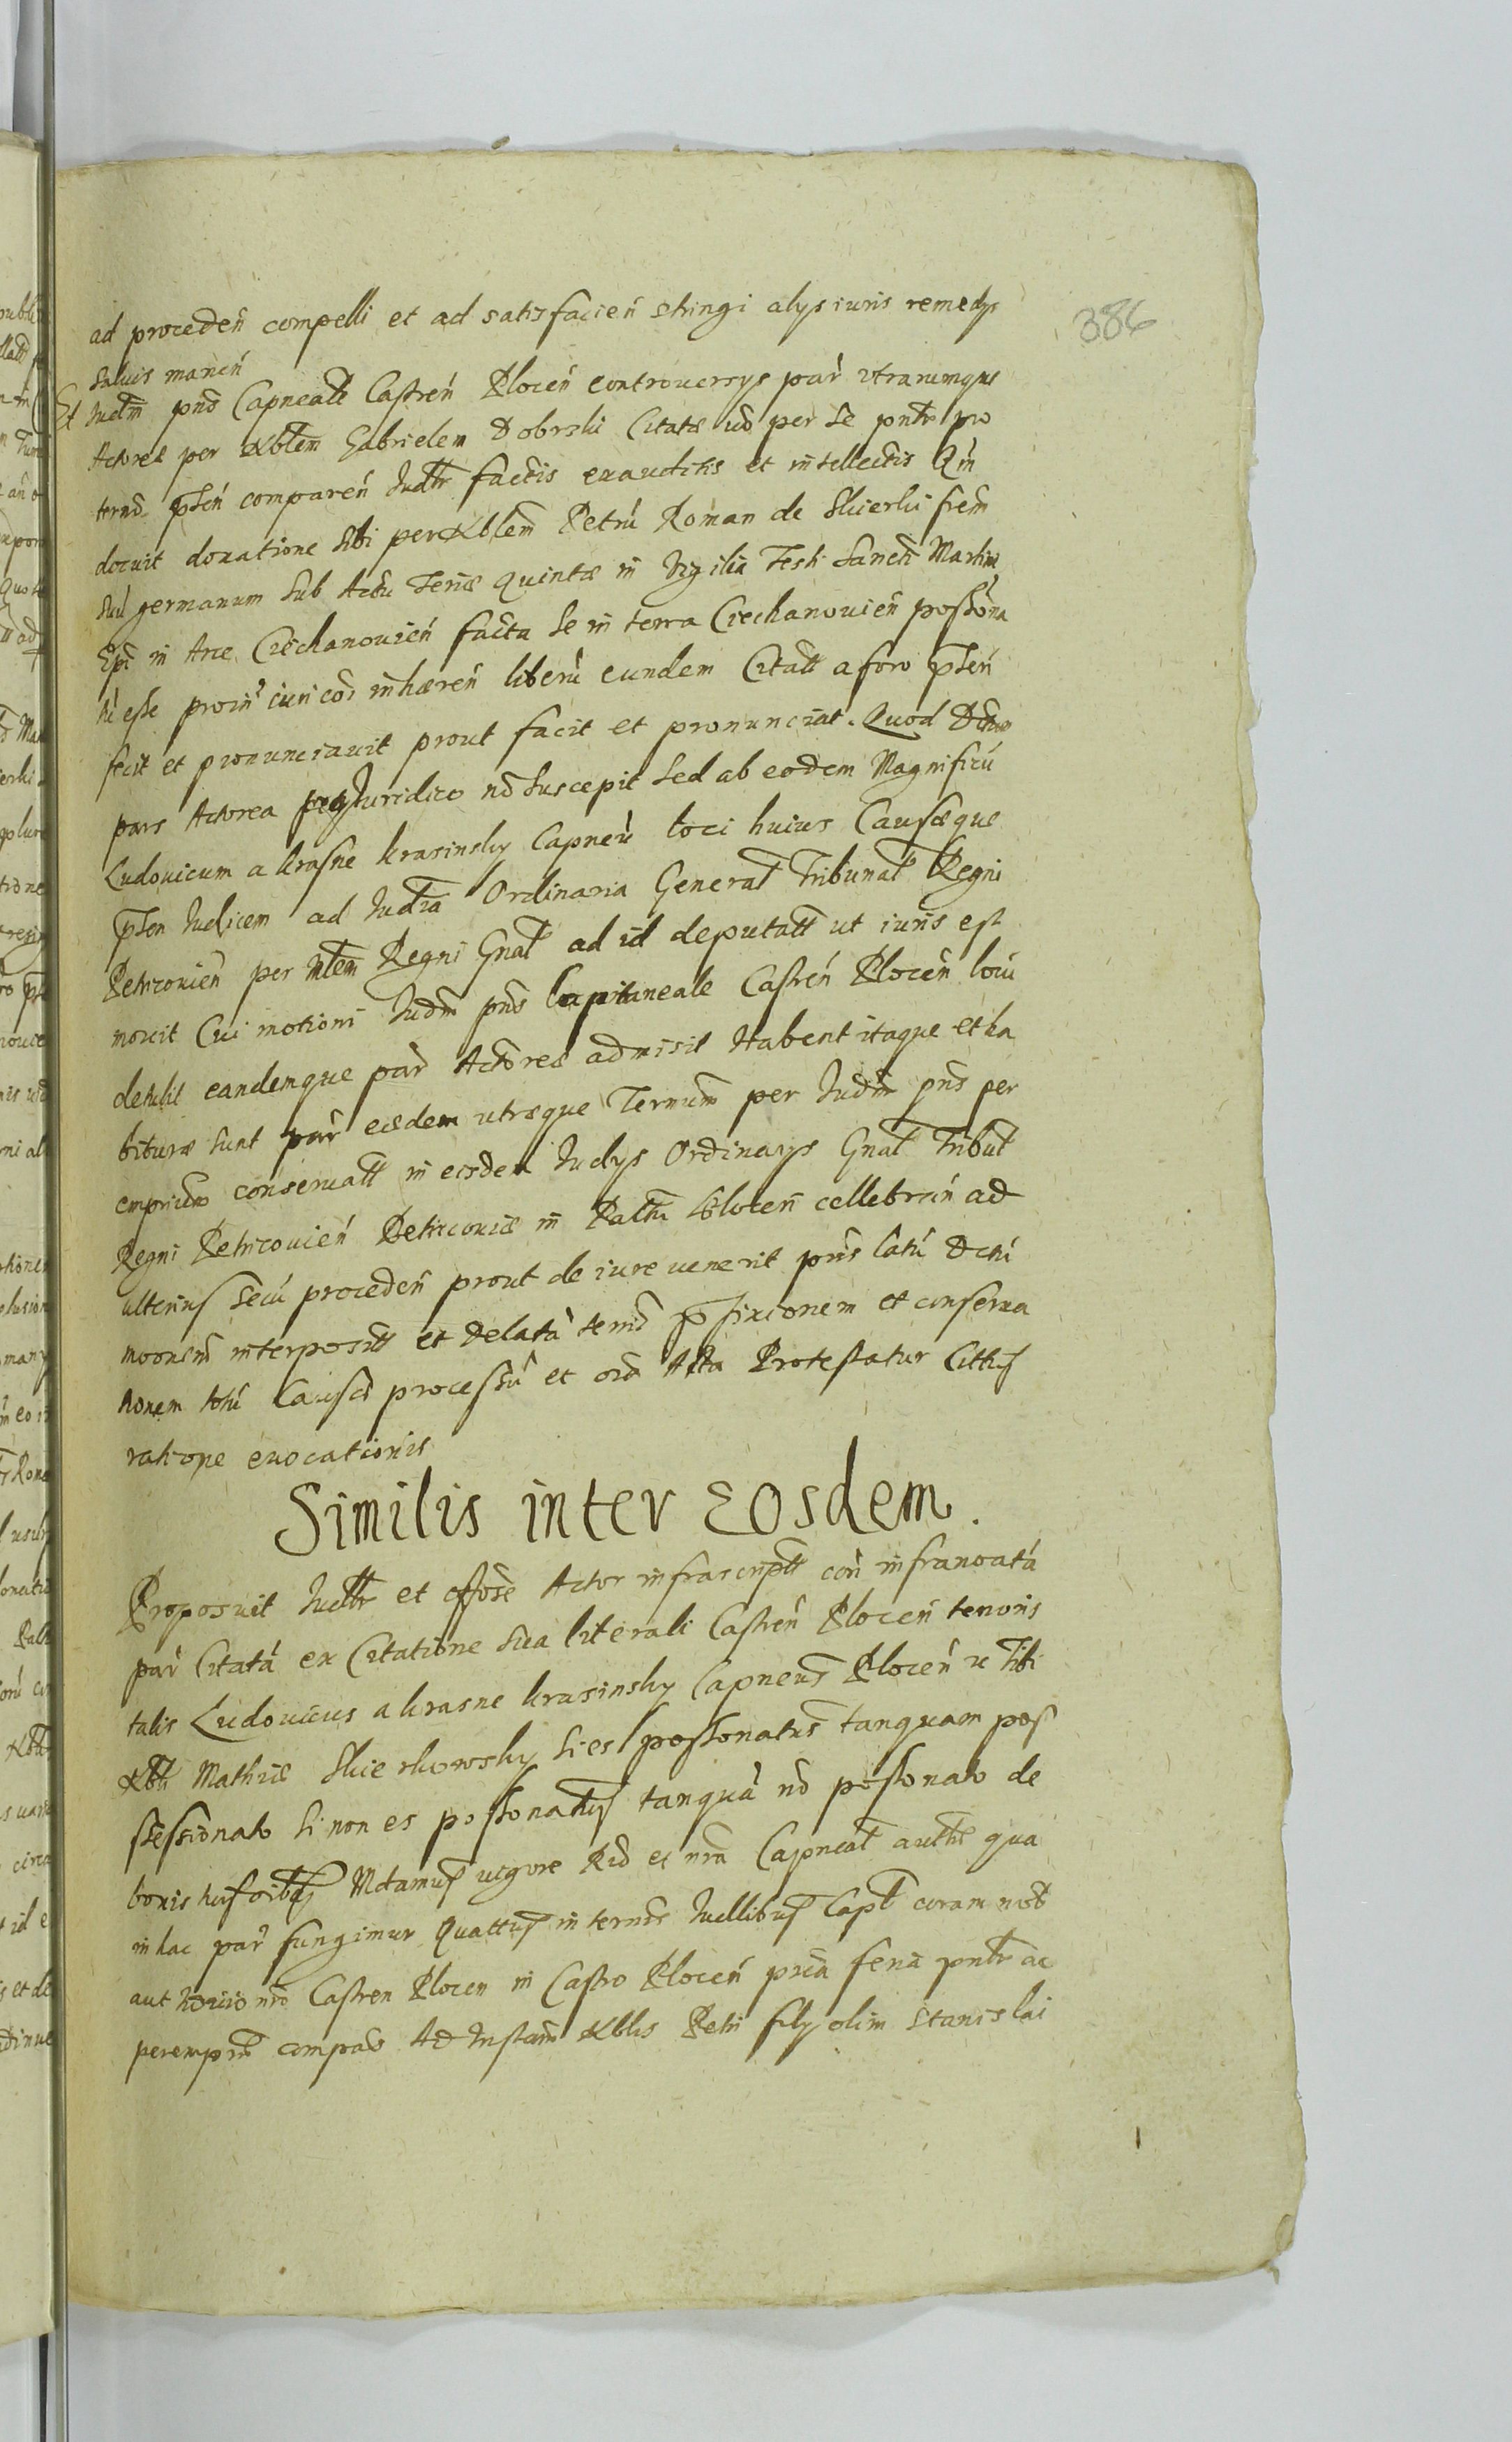 386
ad proceden compelli et ad satisfacien stringi alys iuris remedys
saluis manen
Et Iudm pns Capneale Castren Plocen controuersys par utrarumque
Actorea per Nblem Gabrielem Dobrski Citatæ uo per se pntr pro
termo pnsen comparen Iudtr factis exauditis et intellectis Qm
docuit donatione sibi per Nblem Petru Roman de Skierki frem
suu germanum sub Actu Feriæ quintæ in Vigilia Festi Sancti Martini
Epi in Arce Ciechanouien facta se in terra Ciechanouien possona
tu esse proin iuri coi inhæren liberu eundem Citatt a foro pnsen
fecit et pronunciauit prout facit et pronunciat. Quod Dctum
pars Actorea pro Iuridico no suscepit sed ab eodem Magnificu
Ludouicum a Krasne Krasinsky Capneu loci huius Causæque
pnsen Iudicem ad Iudia Ordinaria General Tribunal Regni
Petricouien per Mlem Regni Gnal ad id deputatt ut iuris est
mouit Cui motioni Iudm pns Capitaneale Castren Plocen locu
detulit eandemque par Actorea admisit Habent itaque et ha
bituræ sunt par eædem utræque Termum per Iudm pns per
emprium conseruatt in eisdem Iudys Ordinarys Gnal Tribul
Regni Petricouien Petricouiæ in Palttu Plocen cellebran ad
ulterius secu proceden prout de iure uenerit pnis latu Dctu
motionem interpositt et delata termi præfixionem et conserua
tionem totu Causæ processu et oia Acta Protestatur Cittus
ratione euocationis
Similis inter Eosdem.
Proposuit Iudtr et offose Actor infrascriptt con infranoata
par Citata ex Citatione sua literali Castren Plocen tenoris
talis Ludouicus a Krasne Krasinsky Capneus Plocen Tibi
Nbli Mathiæ Skierkowsky si es possonatus tanquam pos
sessionato si non es possonatus tanqua no possonato de
bonis tuis oibus Mdamus uigore Rid et nra Capneal autte qua
in hac par fungimur Quattus in termis Iudlibus Capl coram nob
aut Officio nro Castren Plocen in Castro Plocen pria feria pntr ac
peremprio compas Ad Instam Nblis Petri fily olim Stanislai